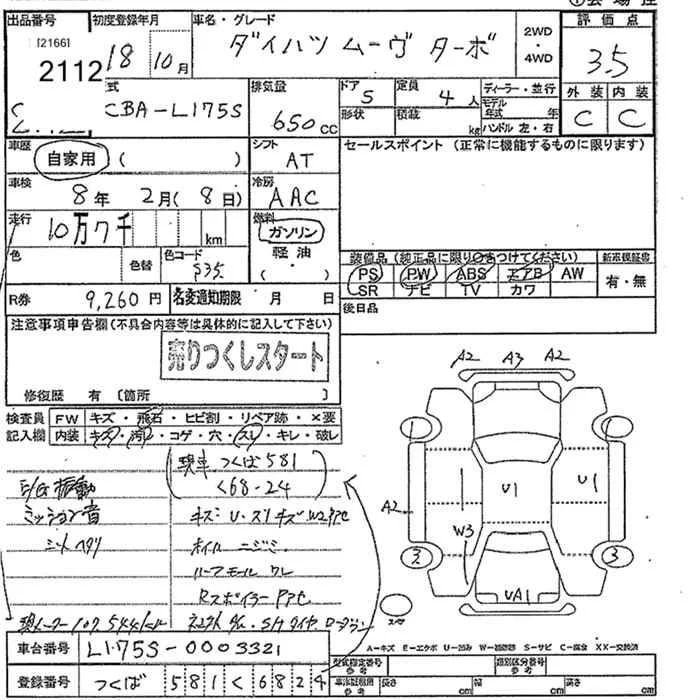 ①会場控
出品番号 初度登録年月 車名・グレード 評価点
[2166]
2112
18 10月
ダイハツ ムーヴ ターボ
2WD
・
4WD
3.5
外装 内装
C C
式 CBA-L175S
排気量 650cc
ドア 5
形状
定員 4人
積載 kg
ディーラー・並行
モデル年式 年
ハンドル 左・右
車歴 自家用 ( )
シフト AT
セールスポイント (正常に機能するものに限ります)
車検 8年 2月(8日)
冷房 AAC
走行 10万7千 km
燃料 ガソリン
軽油
( )
色 色替 色コード S35
装備品 (純正品に限り○をつけてください) 新車保証書
PS PW ABS エアB AW
SR ナビ TV カワ
有・無
R券 9,260円 名変通知期限 月 日
後日品
注意事項申告欄(不具合内容等は具体的に記入して下さい)
売りつくしスタート
修復歴 有 〔箇所 〕
検査員 FW キズ・飛石・ヒビ割・リペア跡・×要
記入欄 内装 キズ・汚レ・コゲ・穴・スレ・キレ・破レ
現車 つくば581
く68-24
E/G 振動
ミッション音
シートヘタリ
キズ・U・スリキズ W2アセ
ホイル ニジミ
ルーフモール ワレ
Rスポイラー アセ
A2 A3 A2
A2
U1
U1
W3
UA1
3
スペア
車台番号 L175S-0003321
登録番号 つくば 581 く 6824
A=キズ E=エクボ U=凹み W=補修跡 S=サビ C=腐食 XX=交換済
型式指定番号 参考
類別区分番号 参考
車体証明用 参考
長さ cm 幅 cm 高さ cm